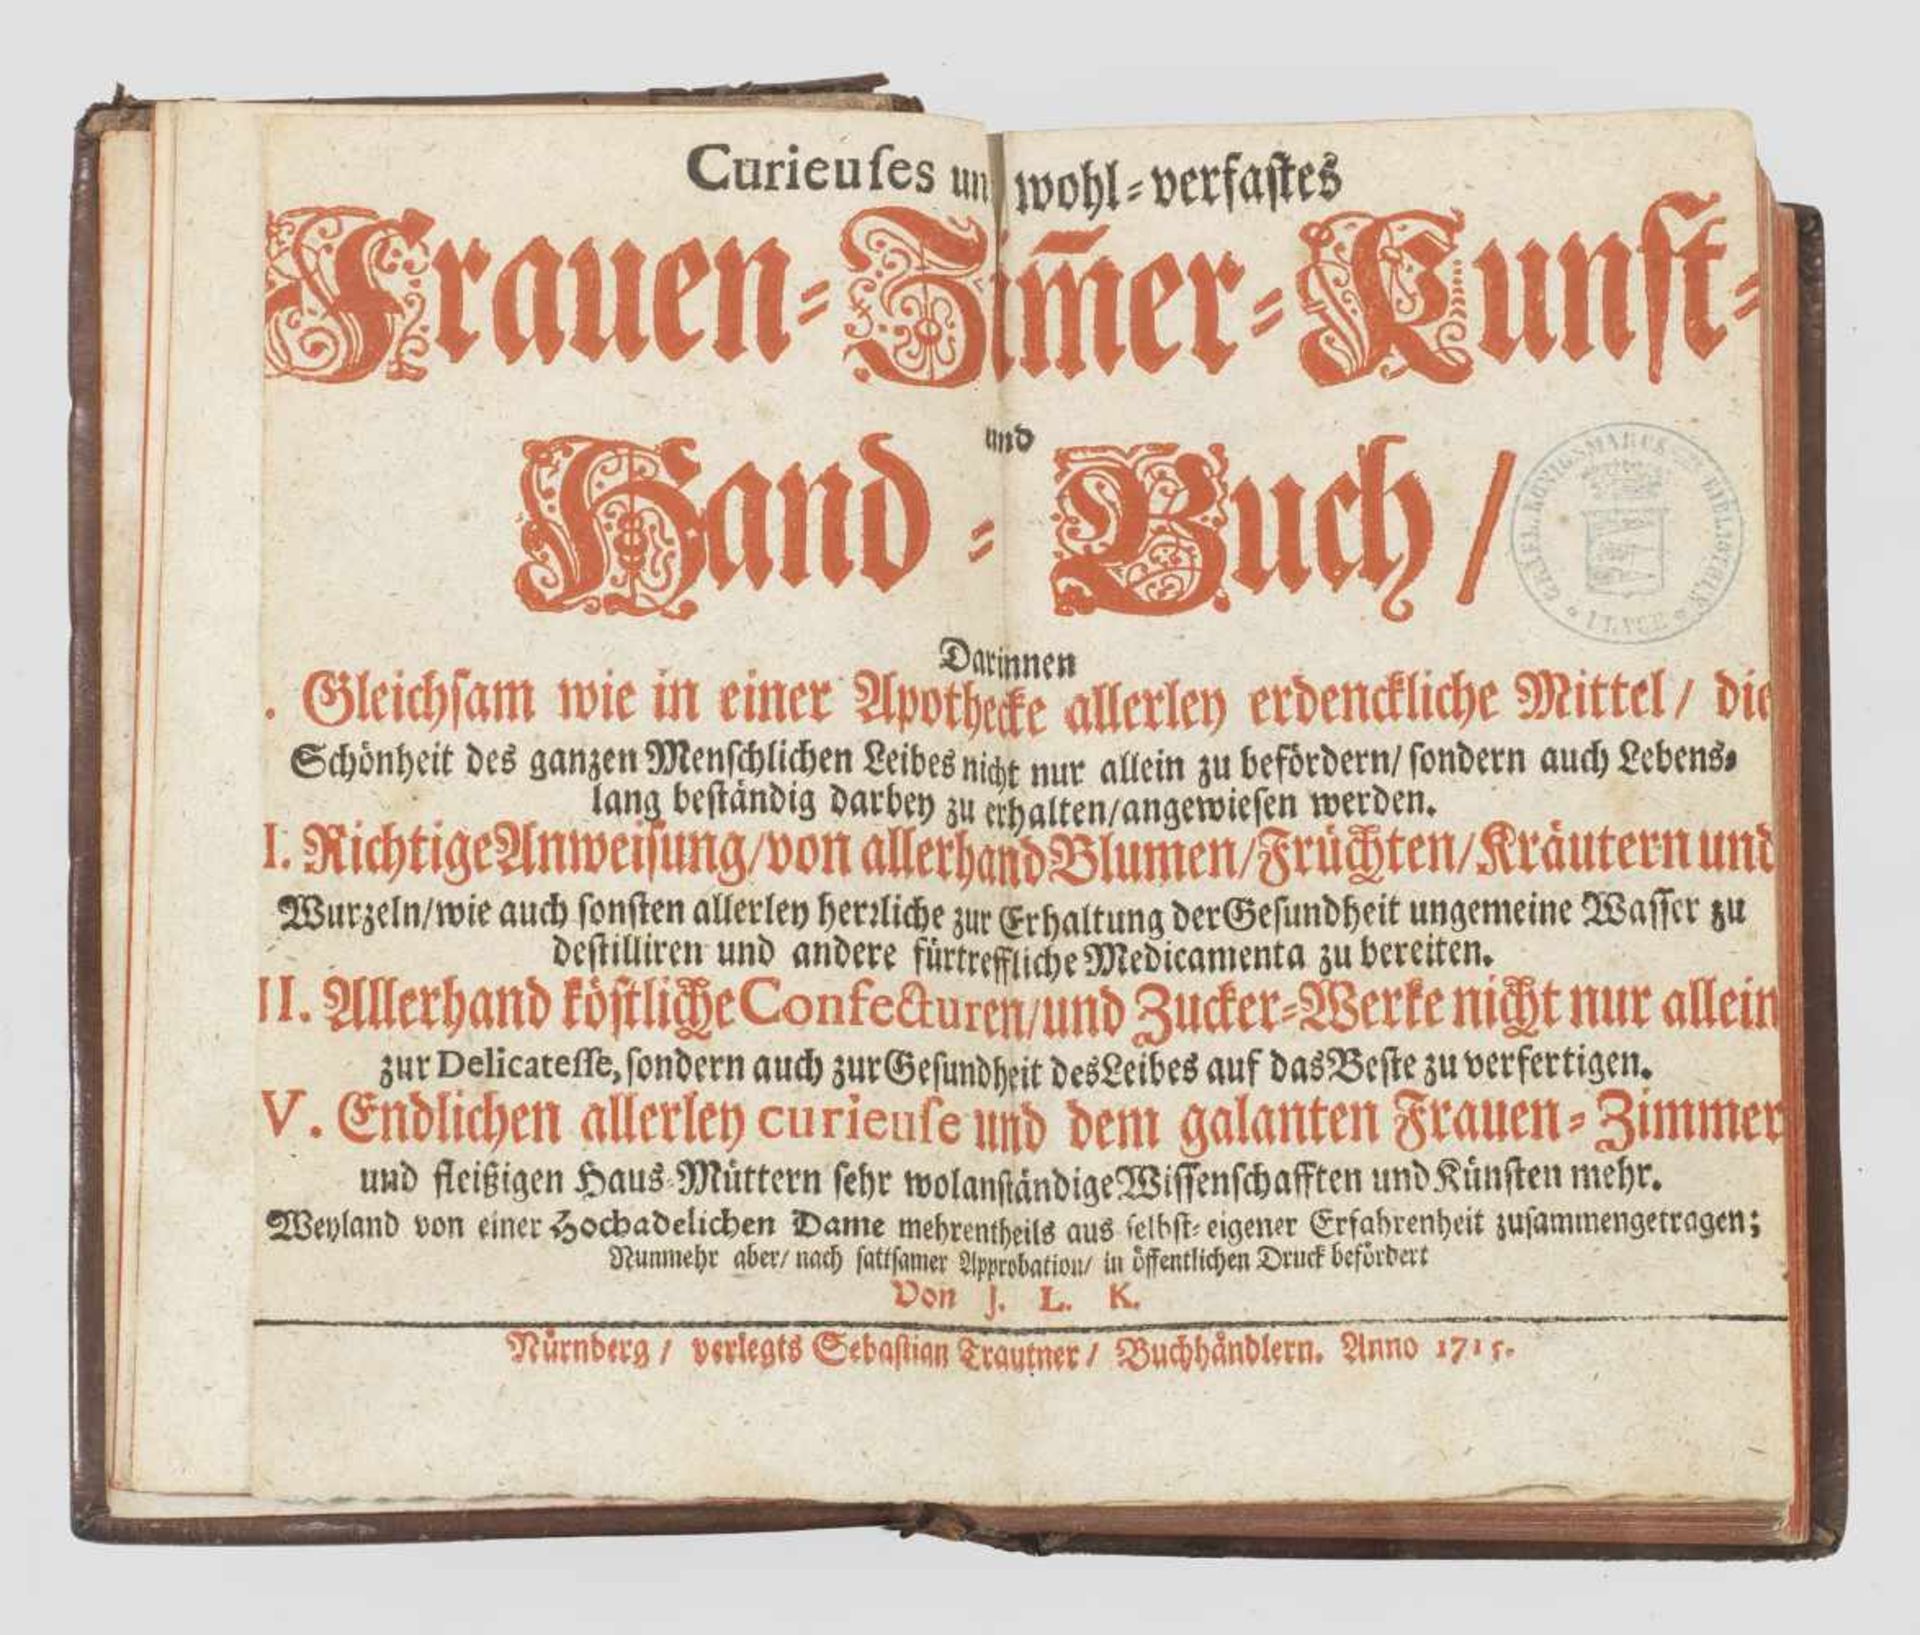 Curieuſes un wohl-verfaſtes
Frauen-Zim̃er-Kunſt-
und
Hand-Buch /
GRÄFL. KÖNIGSMARCK BIBLIOTHEK * PLAUE *
Darinnen
. Gleichſam wie in einer Apothecke allerley erdenckliche Mittel / die
Schönheit des ganzen Menſchlichen Leibes nicht nur allein zu befördern / ſondern auch Lebens-
lang beſtändig darbey zu erhalten / angewieſen werden.
I. Richtige Anweiſung / von allerhand Blumen / Früchten / Kräutern und
Wurzeln / wie auch ſonſten allerley herꝛliche zur Erhaltung der Geſundheit ungemeine Waſſer zu
deſtilliren und andere fürtreffliche Medicamenta zu bereiten.
II. Allerhand köſtliche Confecturen / und Zucker-Werke nicht nur allein
zur Delicateſſe, ſondern auch zur Geſundheit des Leibes auf das Beſte zu verfertigen.
V. Endlichen allerley curieuſe und dem galanten Frauen-Zimmer
und fleißigen Haus-Müttern ſehr wolanſtändige Wiſſenſchafften und Künſten mehr.
Weyland von einer Hochadelichen Dame mehrentheils aus ſelbſt-eigener Erfahrenheit zuſammengetragen;
Nunmehr aber / nach ſattſamer Approbation / in öffentlichen Druck befördert
Von J. L. K.
Nürnberg / verlegts Sebaſtian Trautner / Buchhändlern. Anno 1715.